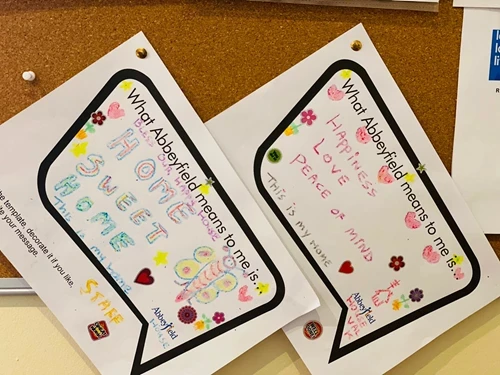 What Abbeyfield means to me is...
HOME
SWEET
HOME
This is my home
Abbeyfield
House
template, decorate it if you like,
your message.
What Abbeyfield means to me is...
HAPPINESS
LOVE
PEACE OF MIND
THIS IS MY HOME
Abbeyfield